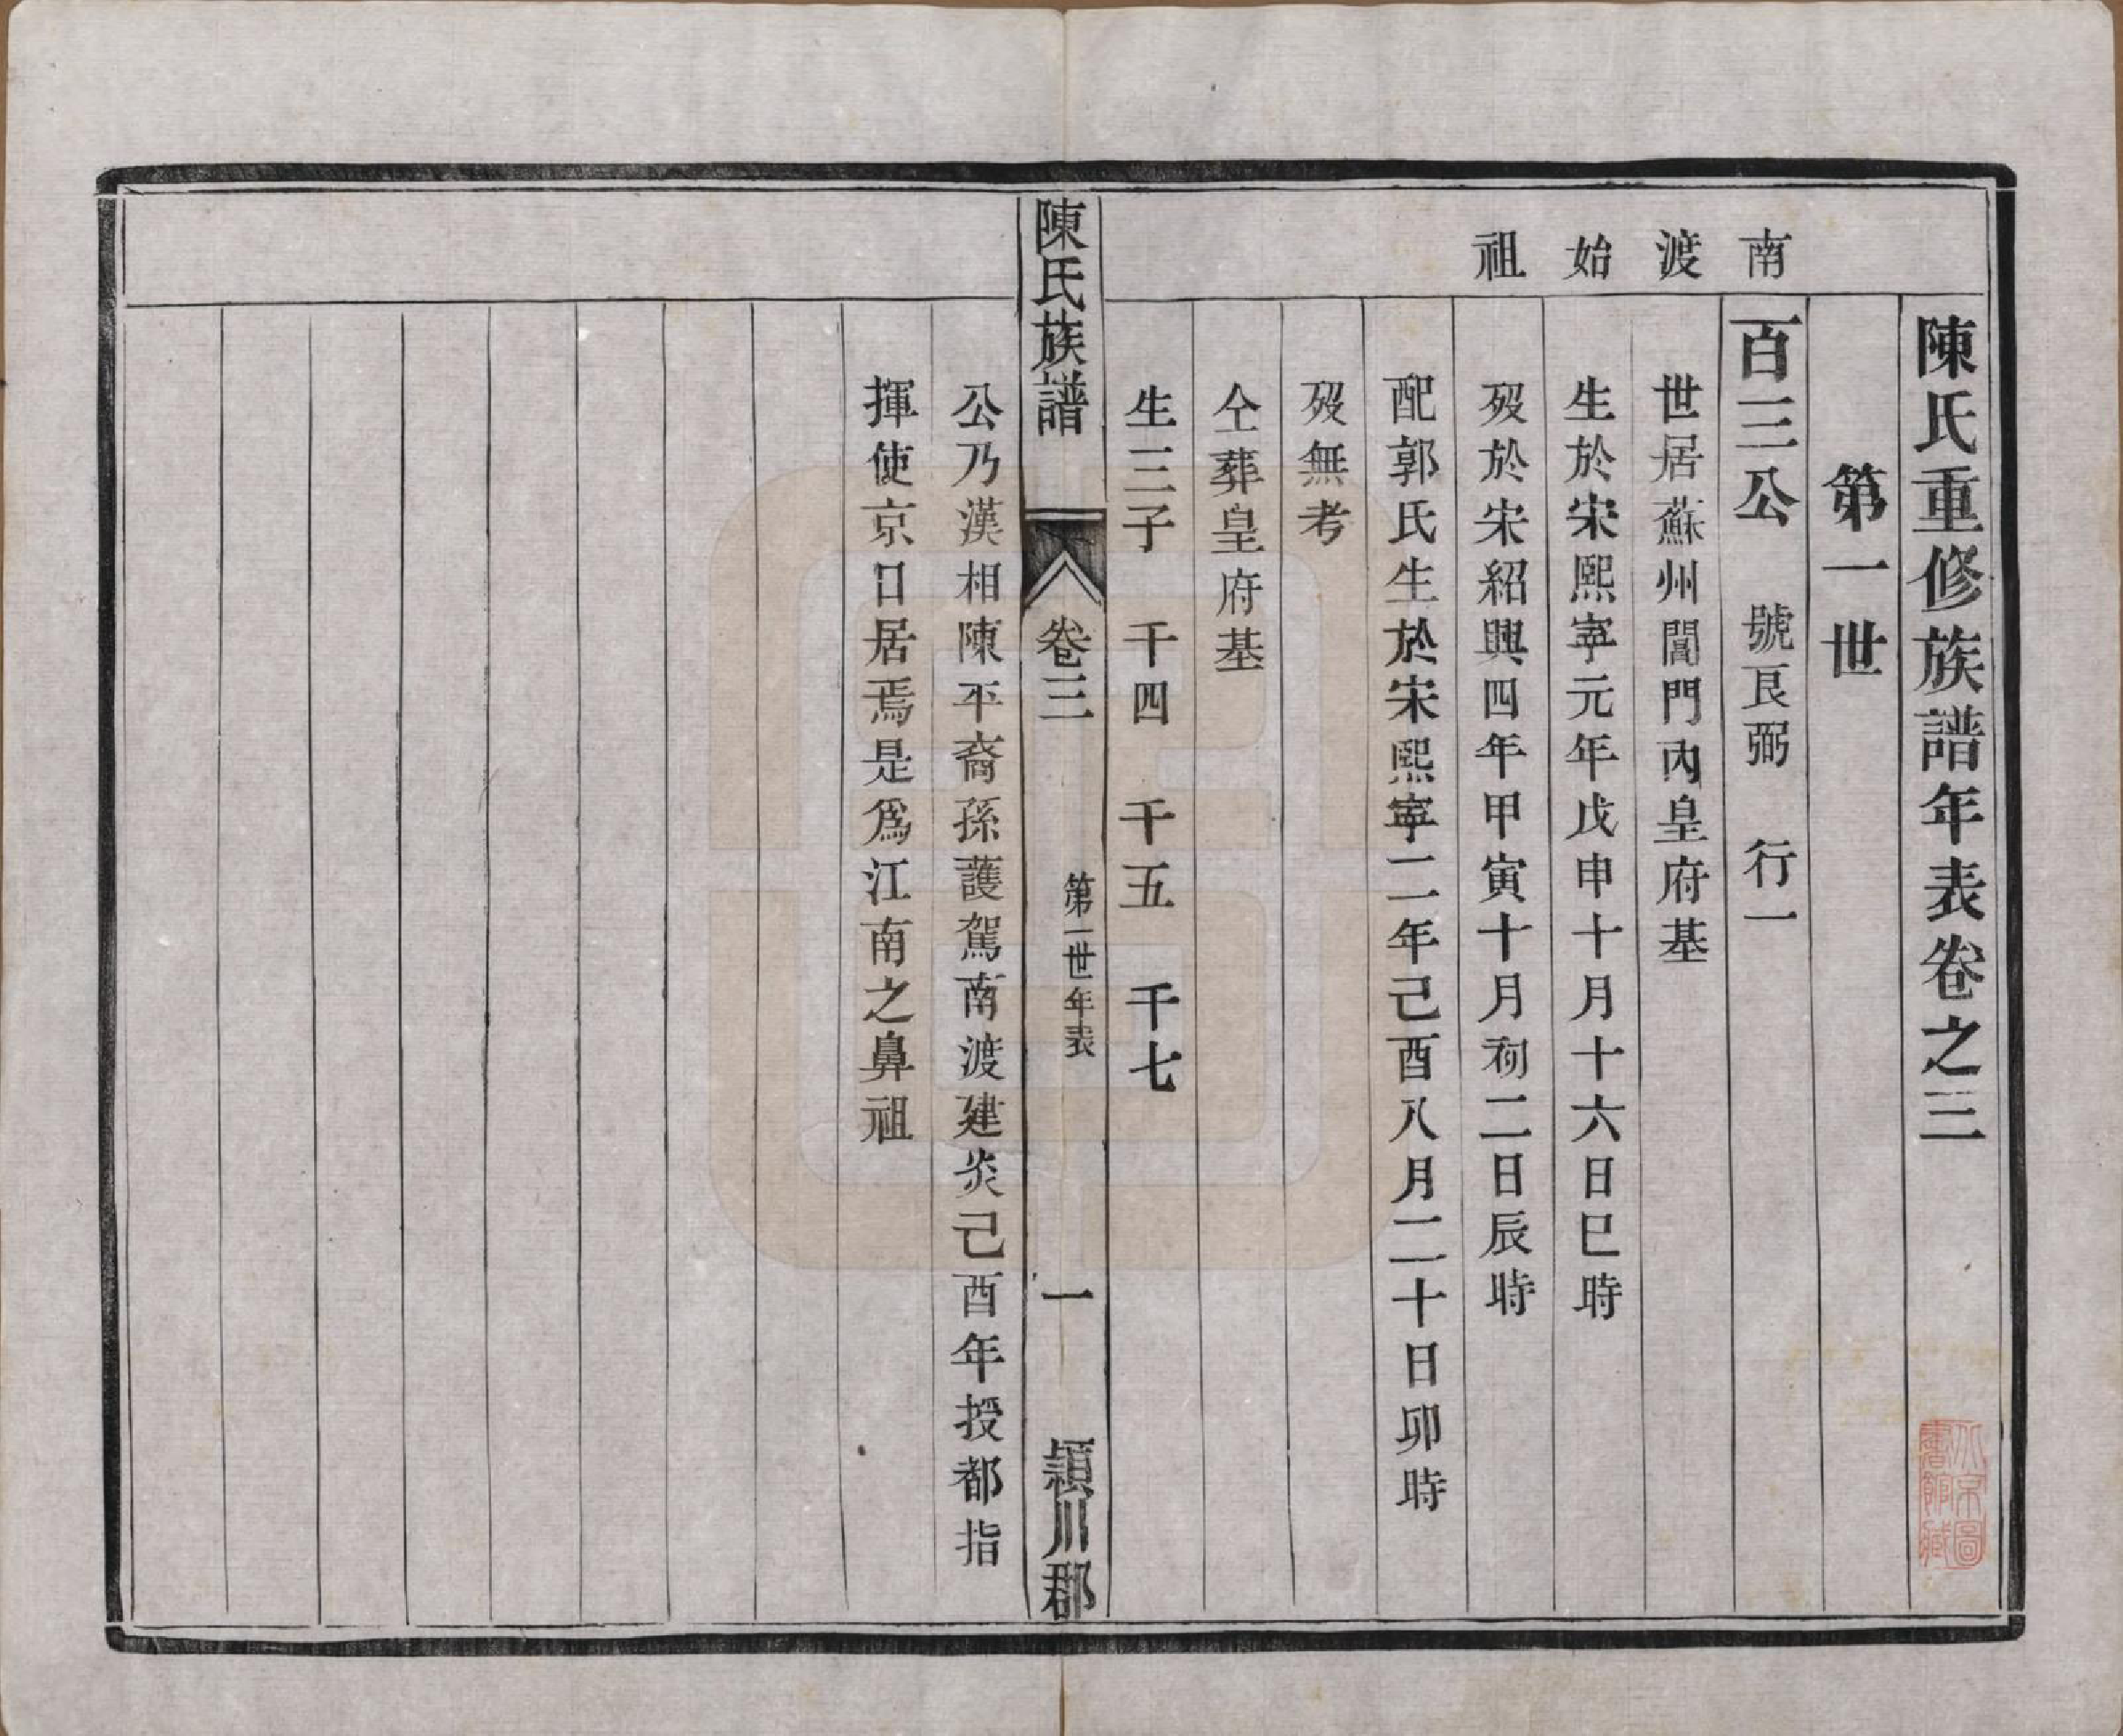 陳氏重修族譜年表卷之三
第一世
南渡始祖
百三公 號艮弼 行一
世居蘇州閶門內皇府基
生於宋熙寧元年戊申十月十六日巳時
歿於宋紹興四年甲寅十月初二日辰時
配郭氏生於宋熙寧二年己酉八月二十日卯時
歿無考
仝葬皇府基
生三子 千四 千五 千七
陳氏族譜 卷三 第一世年表 一 潁川郡
公乃漢相陳平裔孫護駕南渡建炎己酉年授都指
揮使京口居焉是為江南之鼻祖
北京圖
書館藏